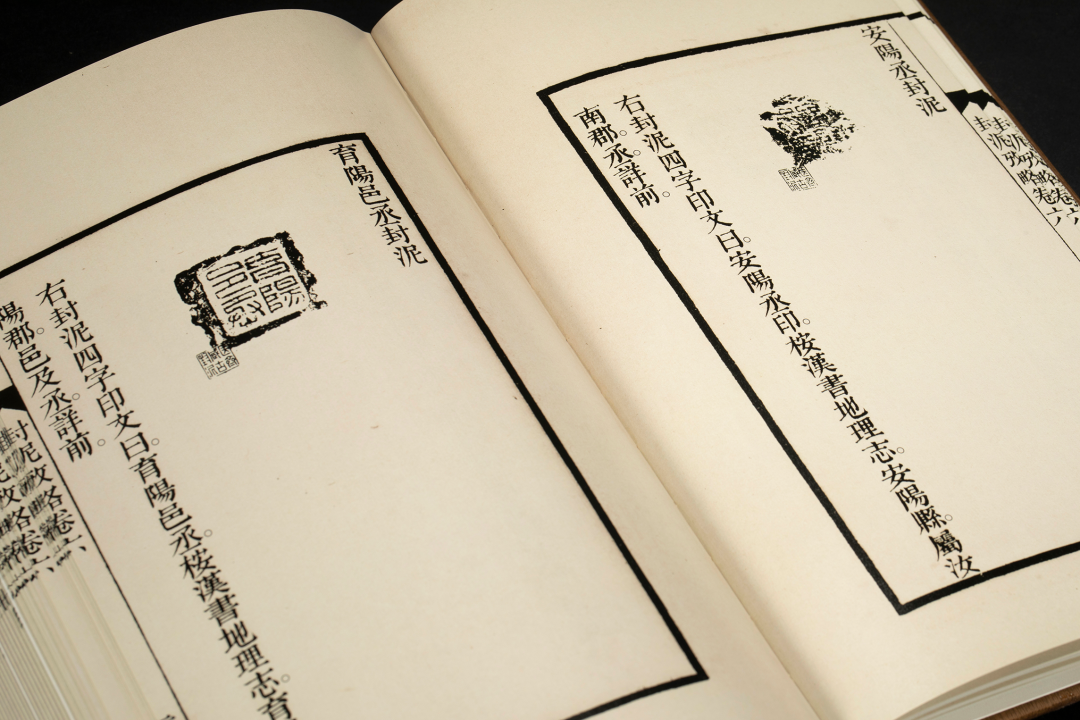 安陽丞封泥
右封泥四字印文曰。安陽丞印。桉漢書地理志。安陽縣。屬汝
南郡。丞詳前。
封泥攷略卷六
育陽邑丞封泥
育陽邑丞
右封泥四字印文曰。育陽邑丞。桉漢書地理志。育
陽郡。邑及丞。詳前。
封泥攷略卷六